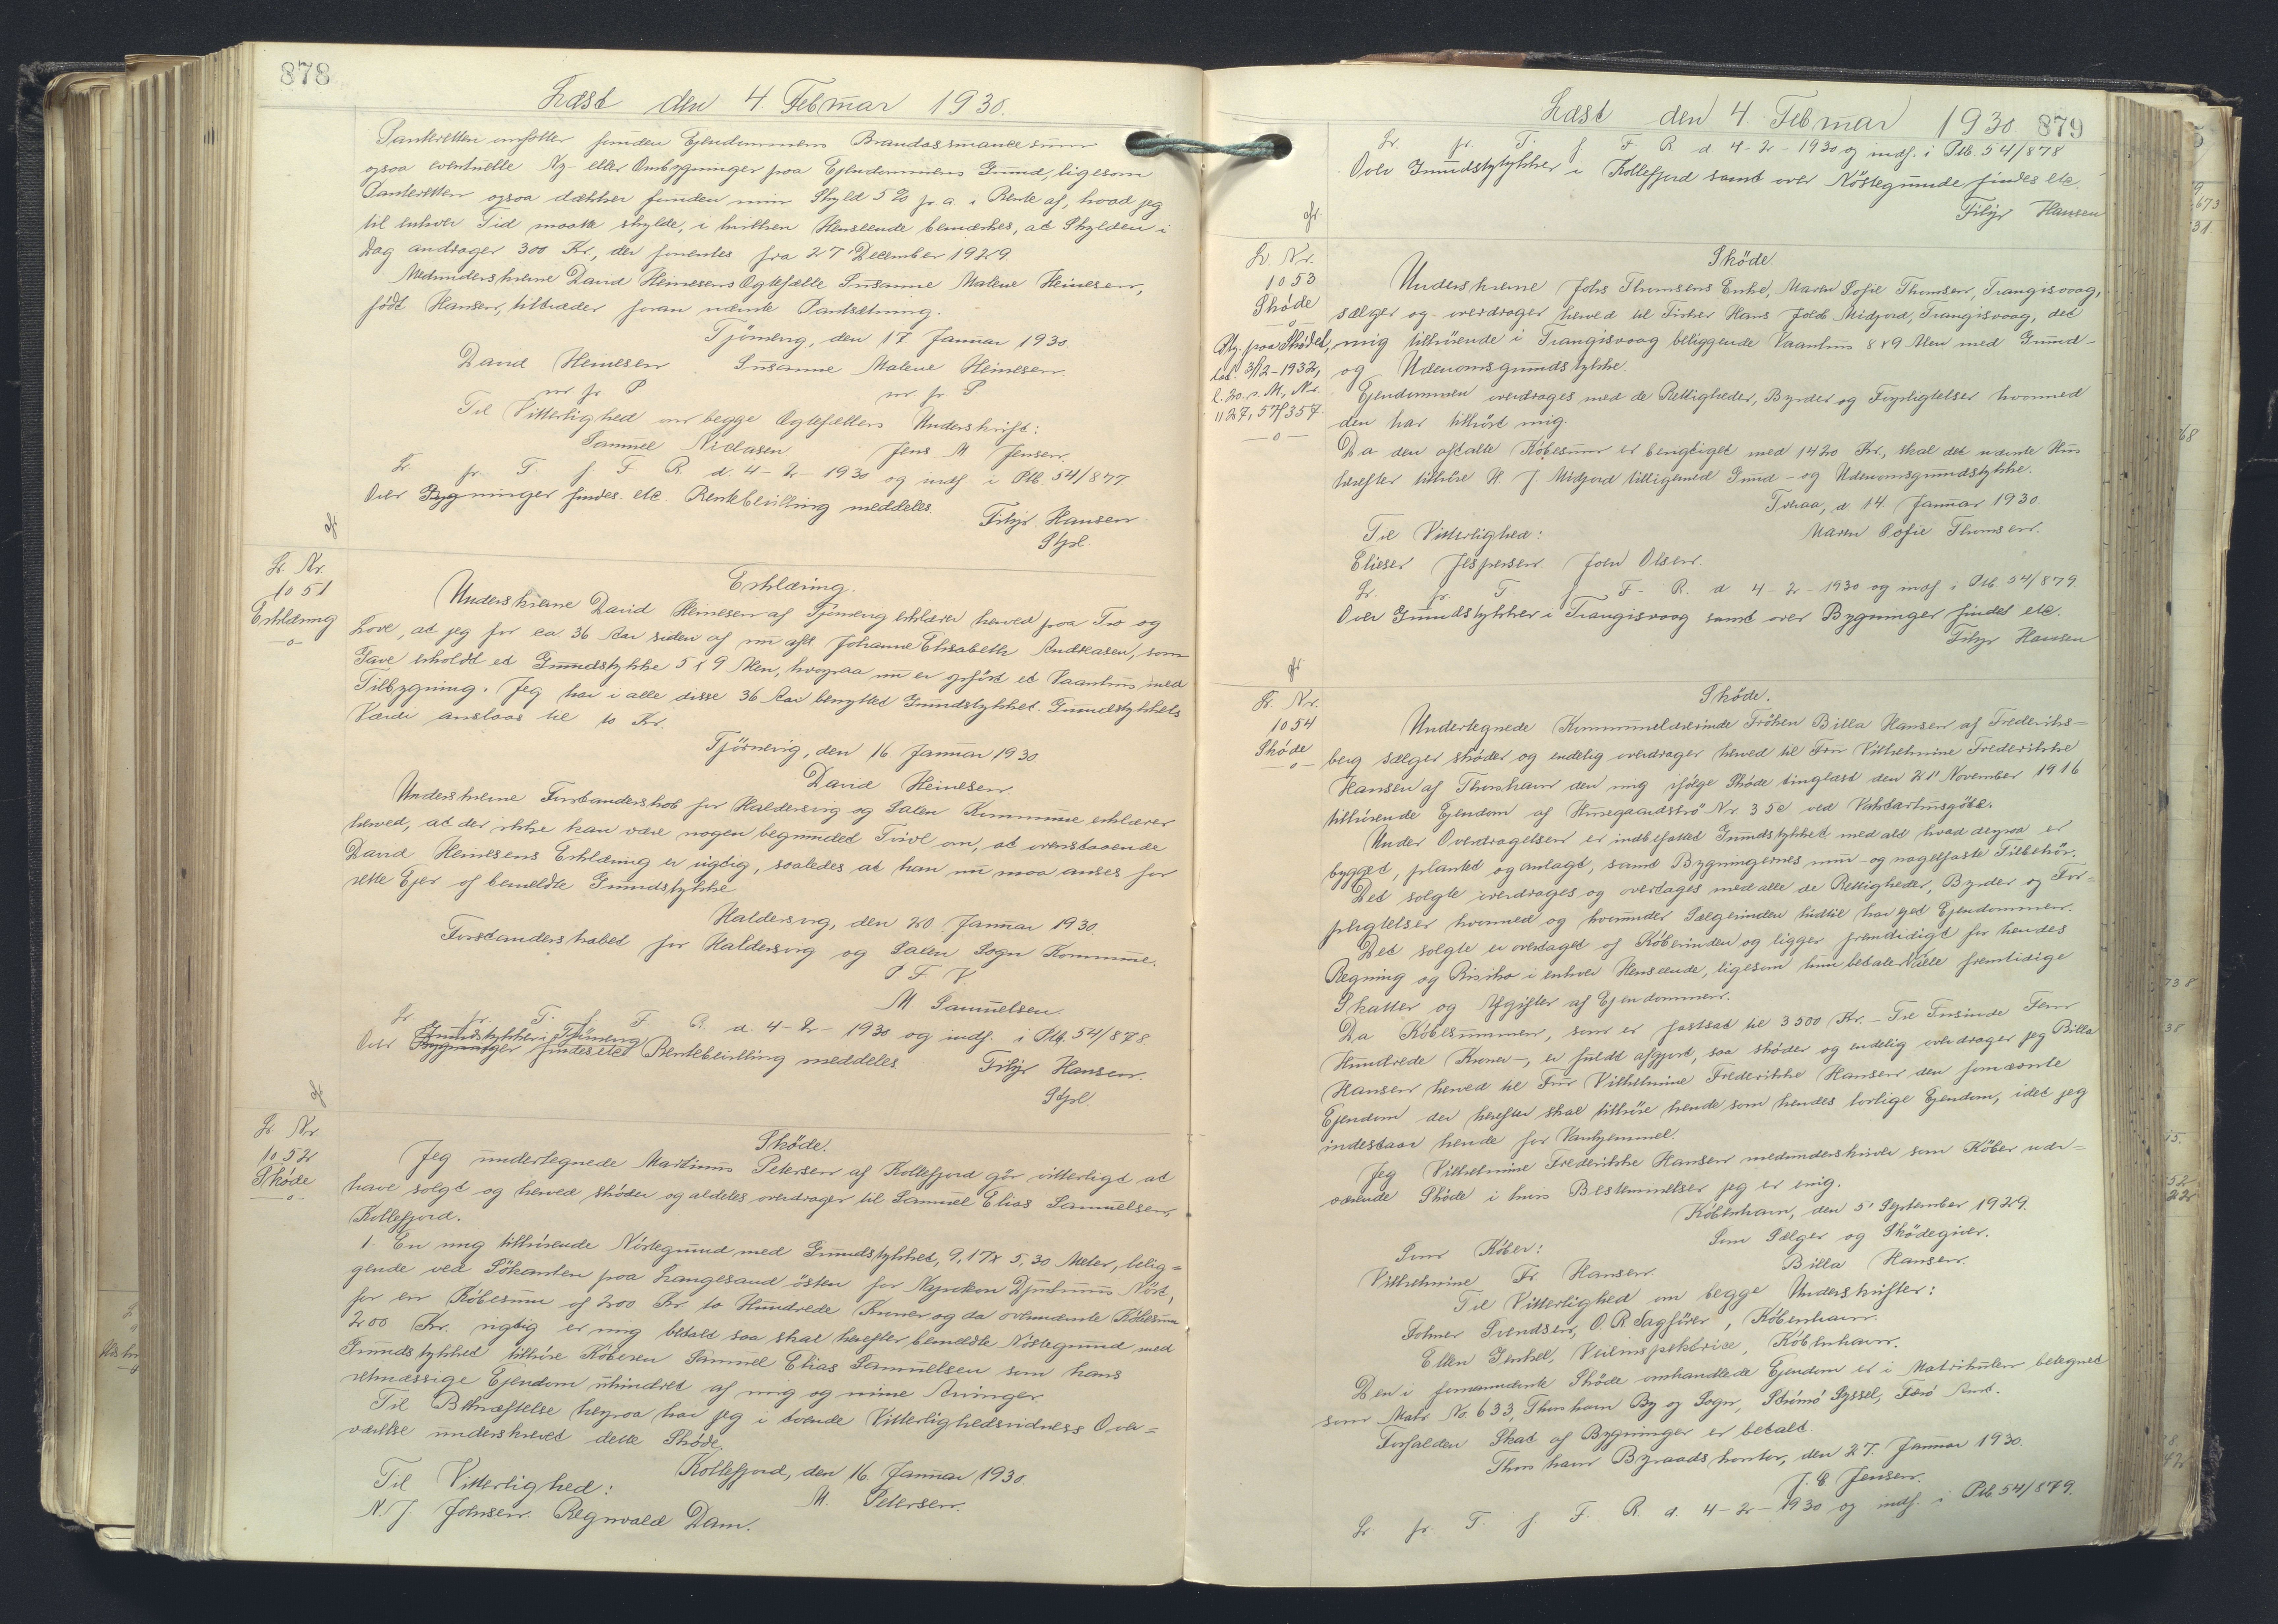 878
Læst den 4 Februar 1930.
Panteretten omfatter foruden Ejendommens Brandassurancesum
ogsaa eventuelle Ny- eller Ombygninger paa Ejendommens Grund, ligesom
Panteretten ogsaa dækker foruden min Skyld 5% pr. a. i Rente af, hvad jeg
til enhver Tid maatte skylde, i hvilken Henseende bemærkes, at Skylden i
Dag andrager 300 Kr., der forrentes fra 27 December 1929.
Medunderskrevne David Heinesens Ægtefælle Susanne Malene Heinesen,
født Hansen, tiltræder foran nævnte Pantsætning.
Tjörnevig, den 17 Januar 1930
David Heinesen Susanne Malene Heinesen
m fr. P m fr. P.
Til Vitterlighed om begge Ægtefællers Underskrift:
Samuel Niclasen Jens M Jensen.
Lr. fr. T. f. F. R. d. 4-2-1930 og indf i Ptb. 54/877.
Over Bygninger findes etc. Rentebevilling meddeles.
Filip Hansen
Stpl.
gr
Lr. Nr
1051
Erklæring
-o-
Erklæring.
Underskrevne David Heinesen af Tjörnevig erklærer herved paa Tro og
Love, at jeg for ca 36 Aar siden af nu afd. Johanne Elisabeth Andreasen, som
Gave erholdt et Grundstykke 5 x 9 Alen, hvorpaa nu er opført et Vaanhus med
Tilbygning. Jeg har i alle disse 36 Aar benyttet Grundstykket. Grundstykkets
Værdi anslaas til 10 Kr.
Tjörnevig, den 16 Januar 1930
David Heinesen.
Underskrevne Forstanderskab for Haldersvig og Saxen Kommune erklærer
herved, at der ikke kan være nogen begrundet Tvivl om, at ovenstaaende
David Heinesens Erklæring er rigtig, saaledes at han nu maa anses for
rette Ejer af bemeldte Grundstykke
Haldersvig, den 20 Januar 1930.
Forstanderskabet for Haldersvig og Saxen Sogn Kommune.
P. F. V
M Samuelsen.
Lr. fr. T. f. F. R. d. 4-2-1930 og indf. i Ptb. 54/878.
Grundstykker i Tjörnevig
Over Bygninger findes etc. Rentebevilling meddeles
Filip Hansen.
Stpl.
gr
Lr Nr
1052
Skøde
-o-
Skøde.
Jeg undertegnede Martinus Petersen af Kollefjord gör vitterligt at
have solgt og herved skøder og aldeles overdrager til Samuel Elias Samuelsen,
Kollefjord.
1. En mig tilhörende Nöstegrund med Grundstykket, 9,17 x 5,30 Meter, belig=
gende ved Sökanten paa Langesand östen for Nysokon Djurhuus Nöst,
for en Købesum af 200 Kr to Hundrede Kroner og da ovennævnte Købesum
200 Kr. rigtig er mig betalt saa skal herefter bemeldte Nöstegrund med
Grundstykket tilhöre Köberen Samuel Elias Samuelsen som hans
retmæssige Ejendom uhindret af mig og mine Arvinger.
Til Bekræftelse herpaa har jeg i tvende Vitterlighedsvidners Over=
værelse underskrevet dette Skøde.
Kollefjord, den 16. Januar 1930.
Til Vitterlighed: M. Petersen.
N. J Johnsen. Regnvald Dam.
Læst den 4 Februar 1930 879
Lr. fr. T. f F R d 4-2-1930 og indf. i Ptb. 54/878
Over Grundstykker i Kollefjord samt over Nöstegrunde findes etc.
Filip Hansen
gr.
Lr. Nr.
1053
Skøde
-o-
Lr. Nr. 1127, 57/357.
-o-
Skøde.
Underskrevne Johs Thomsens Enke, Maren Sofie Thomsen, Trangisvaag,
sælger og overdrager herved til Fisker Hans Jacob Midjord, Trangisvaag, det
mig tilhörende i Trangisvaag beliggende Vaanhus 8 x 9 Alen med Grund-
og Udenomsgrundstykke.
Ejendommen overdrages med de Rettigheder, Byrder og Forpligtelser hvormed
den har tilhört mig.
Da den aftalte Købesum er berigtiget med 1420 Kr., skal det nævnte Hus
herefter tilhöre H. J. Midjord tilligemed Grund- og Udenomsgrundstykke.
Tveraa, d. 14. Januar 1930.
Til Vitterlighed: Maren Sofie Thomsen.
Elieser Jespersen. Joen Olsen.
Lr. fr. T. f F. R. d 4-2-1930 og indf. i Ptb. 54/879.
Over Grundstykker i Trangisvaag samt over Bygninger findes etc.
Filip Hansen
gr
Lr. Nr.
1054
Skøde
-o-
Skøde.
Undertegnede Kommunelærerinde Fröken Billa Hansen af Frederiks=
berg sælger skøder og endelig overdrager herved til Fru Vilhelmine Frederikke
Hansen af Thorshavn den mig ifölge Skøde tinglæst den 21' November 1916
tilhörende Ejendom af Husegaardströ Nr. 35c ved Vaktarhusgöta.
Under Overdragelsen er indbefattet Grundstykket med alt hvad derpaa er
bygget, plantet og anlagt, samt Bygningernes mur- og nagelfaste Tilbehör.
Det solgte overdrages og overtages med alle de Rettigheder, Byrder og For=
pligtelser hvormed og hvorunder Sælgerinden hidtil har ejet Ejendommen.
Det solgte er overtaget af Köberinden og ligger fremtidigt for hendes
Regning og Risiko i enhver Henseende, ligesom hun betaler alle fremtidige
Skatter og Afgifter af Ejendommen.
Da Købesummen, som er fastsat til 3500 Kr. - Tre Tusinde Fem
Hundrede Kroner -, er fuldt afgjort, saa skøder og endelig overdrager jeg Billa
Hansen herved til Fru Vilhelmine Frederikke Hansen den fornævnte
Ejendom der herefter skal tilhöre hende som hendes lovlige Ejendom, idet jeg
indestaar hende for Vanhjemmel.
Jeg Vilhelmine Frederikke Hansen medunderskriver som Köber nær=
værende Skøde i hvis Bestemmelser jeg er enig.
København, den 5' September 1929.
Som Köber: Som Sælger og Skødegiver.
Vilhelmine Fr. Hansen. Billa Hansen.
Til Vitterlighed om begge Underskrifter:
Folmer Svendsen, O. R Sagförer, København.
Ellen Jenkel, Veiinspektrice, København.
Den i fornævnte Skøde omhandlede Ejendom er i Matrikulen betegnet
som Matr. No. 633, Thorshavn By og Sogn, Strömö Syssel, Færö Amt.
Forfalden Skat af Bygninger er betalt.
Thorshavn Byraadskontor, den 27. Januar 1930.
J. C. Jensen.
Lr. fr. T. f. F. R. d. 4-2-1930 og indf. i Ptb. 54/879.